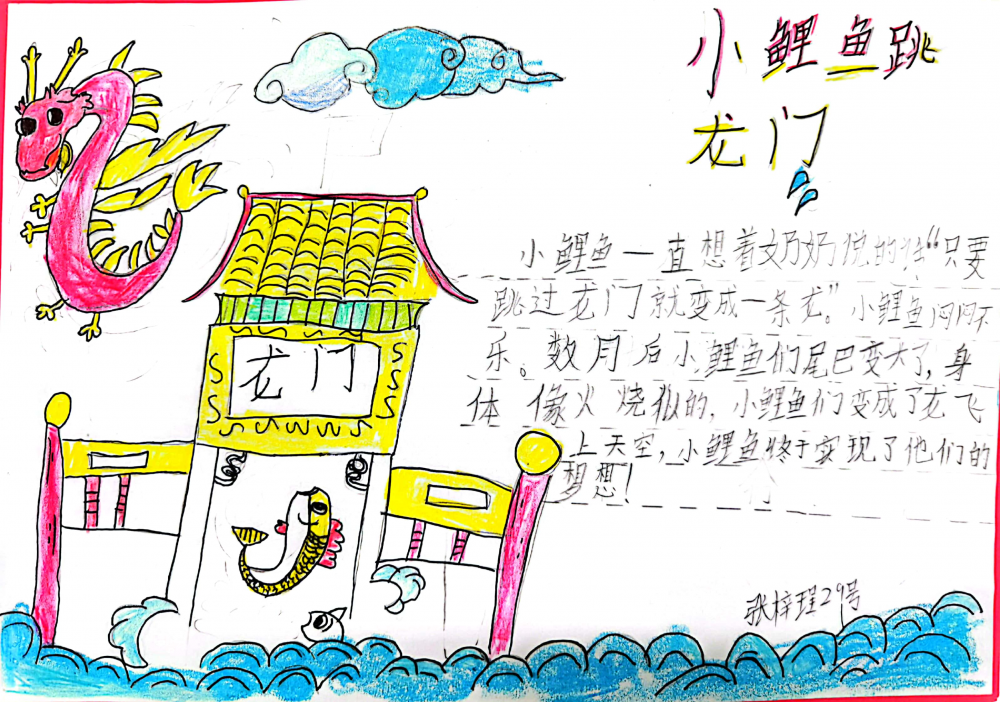 小鲤鱼跳
龙门
龙门
小鲤鱼一直想着奶奶说的话“只要
跳过龙门就变成一条龙”。小鲤鱼闷闷不
乐。数月后小鲤鱼们尾巴变大了,身
体像火烧似的,小鲤鱼们变成了龙飞
上天空,小鲤鱼终于实现了他们的
梦想!
张梓珵29号